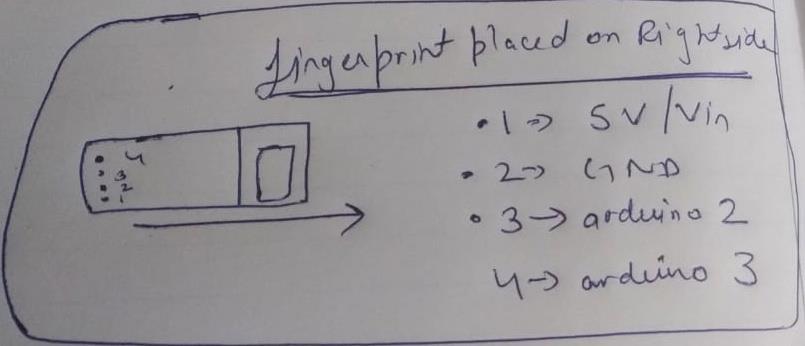 fingerprint placed on Rightside
• 1 => 5V/Vin
• 2 => GND
• 3 -> arduino 2
4 -> arduino 3
4
3
2
1